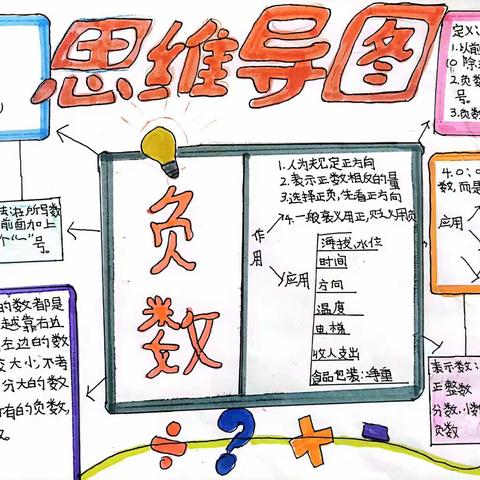 思维导图
定义
1.以前
10除
2.负数
号。
3.负数
4.0
数,而是
应用
负数
1.人为规定正方向
2.表示正数相反的量
3.选择正负,先看正方向
4.一般
作用
应用
海拔,水位
时间
方向
温度
电梯
收入支出
食品包装:净重
所写数
前面加上
个“-”号。
的数都是
越靠右边
左边的数
较大小,不考
分大的数
有的负数,
表示数:
正整数
分数,小数
负数
÷ ? + -